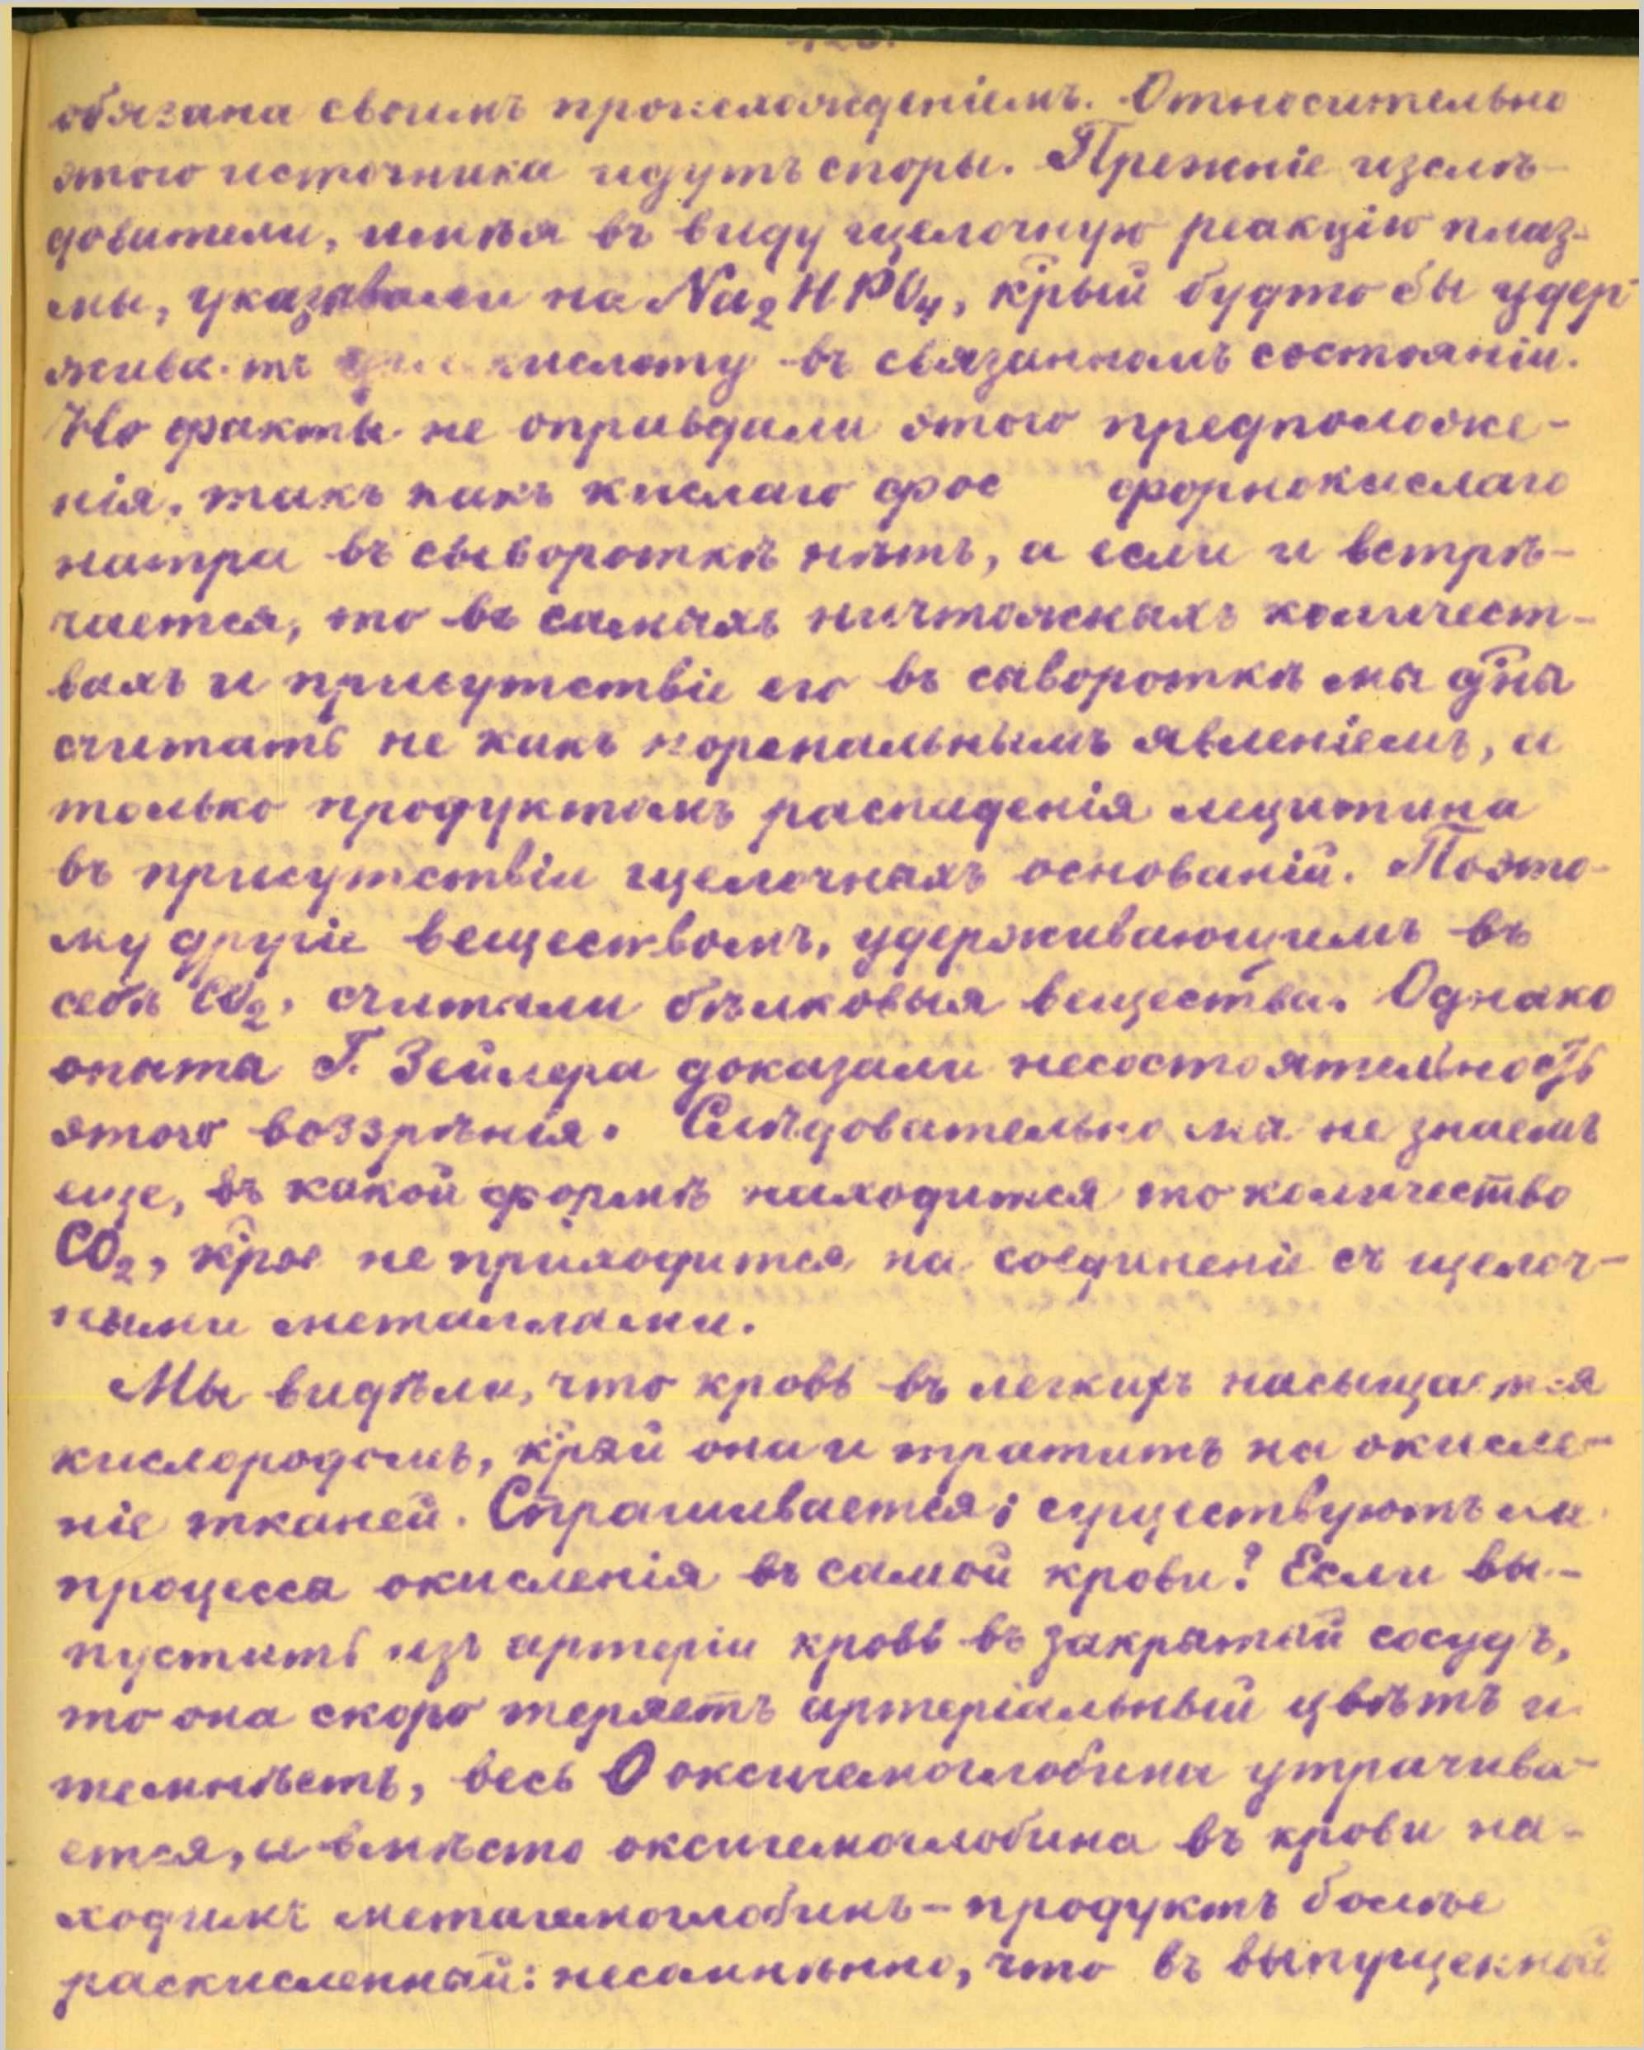 обязана своимъ происхожденіемъ. Относительно
этого источника идутъ споры. Прежніе изслѣ-
дователи, имѣя въ виду щелочную реакцію плаз-
мы, указывали на Na2HPO4, к̂рый будто бы удер-
живаетъ кислоту въ связанномъ состояніи.
Но факты не оправдали этого предположе-
нія, такъ какъ кислаго фос форнокислаго
натра въ сывороткѣ нѣтъ, а если и встрѣ-
чается, то въ самыхъ ничтожныхъ количест-
вахъ и присутствіе его въ сывороткѣ мы д̂ны
считать не какъ нормальнымъ явленіемъ, а
только продуктомъ распаденія лецитина
въ присутствіи щелочныхъ основаній. Поэто-
му другіе веществомъ, удерживающимъ въ
себѣ CO2, считали бѣлковыя вещества. Однако
опыты Г. Зейлера доказали несостоятельность
этого воззрѣнія. Слѣдовательно мы не знаемъ
еще, въ какой формѣ находится то количество
CO2, к̂рое не приходится на соединеніе съ щелоч-
ными металлами.
Мы видѣли, что кровь въ легкихъ насыщается
кислородомъ, к̂рый она и тратитъ на окисле-
ніе тканей. Спрашивается; существуютъ ли
процессы окисленія въ самой крови? Если вы-
пустить изъ артеріи кровь въ закрытый сосудъ,
то она скоро теряетъ артеріальный цвѣтъ и
темнѣетъ, весь O оксигемоглобина утрачива-
ется, и вмѣсто оксигемоглобина въ крови на-
ходимъ метагемоглобинъ - продуктъ болѣе
раскисленный: несомнѣнно, что въ выпущенной